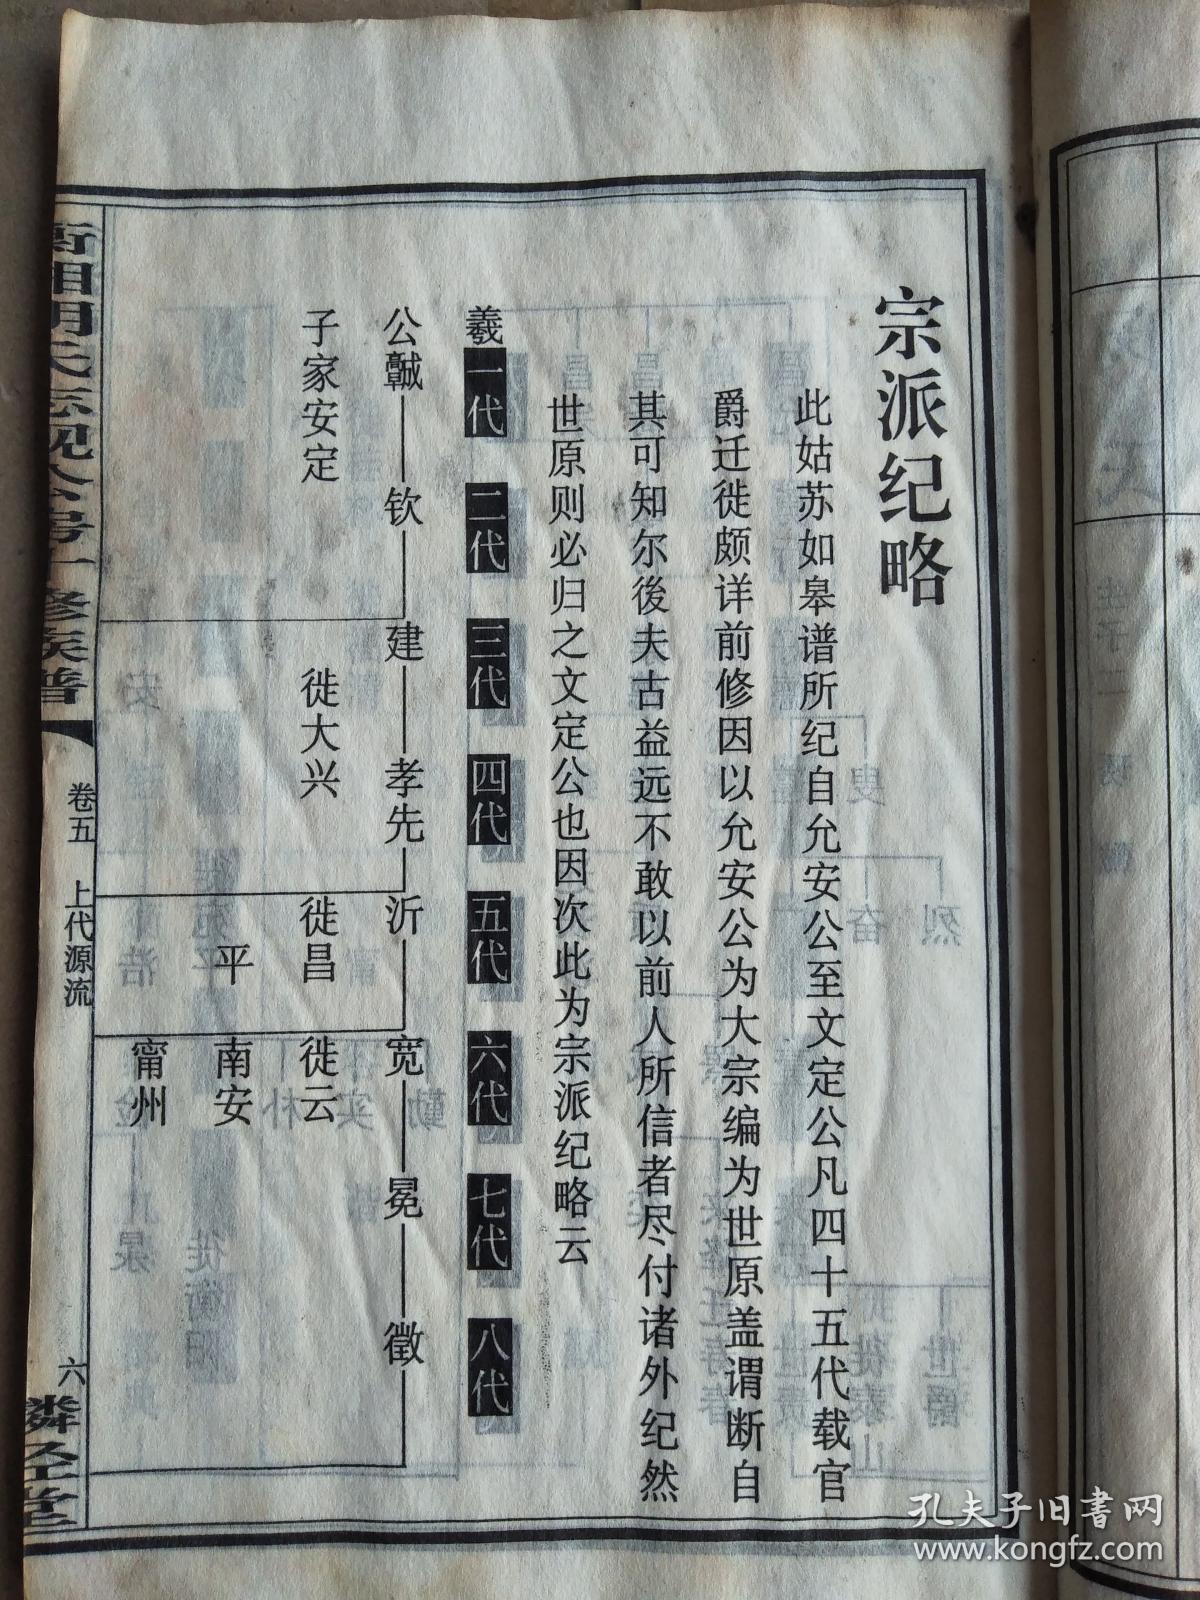 宗派纪略
此姑苏如皋谱所纪自允安公至文定公凡四十五代载官
爵迁徙颇详前修因以允安公为大宗编为世原盖谓断自
其可知尔後夫古益远不敢以前人所信者尽付诸外纪然
世原则必归之文定公也因次此为宗派纪略云
羲一代 二代 三代 四代 五代 六代 七代 八代
公 钦 建 孝先 沂 宽 冕 徵
子家安定 徙大兴 徙昌 徙云
平 南安
甯州
族普
卷五 上代源流 六
孔夫子旧书网
www.kongfz.com